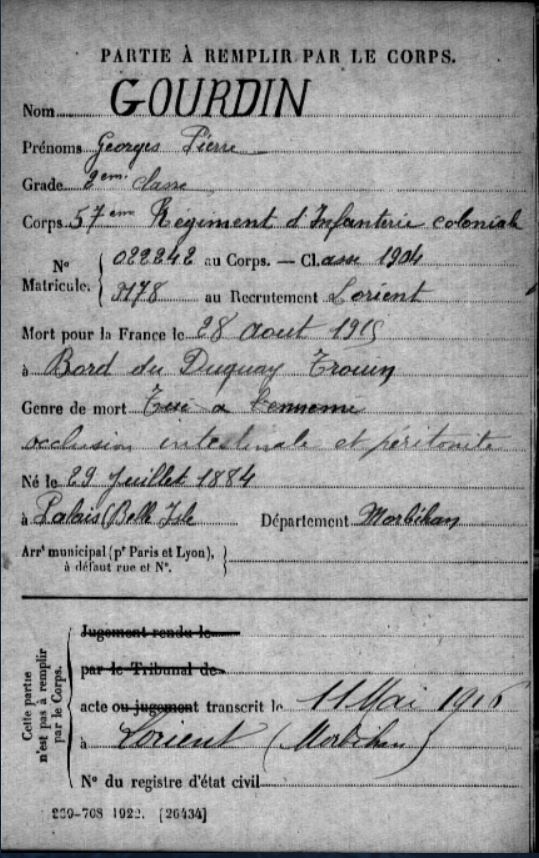 PARTIE À REMPLIR PAR LE CORPS.
Nom GOURDIN
Prénoms Georges Pierre
Grade 2eme classe
Corps 57eme Régiment d'Infanterie coloniale
N° Matricule. 022242 au Corps. — Classe 1904
3178 au Recrutement Lorient
Mort pour la France le 28 aout 1915
à Bord du Duguay Trouin
Genre de mort Tué a l'ennemi
occlusion intestinale et péritonite
Né le 29 Juillet 1884
à Palais (Belle Isle Département Morbihan
Arrt municipal (pr Paris et Lyon),
à défaut rue et N°.
Cette partie n'est pas à remplir par le Corps.
Jugement rendu le
par le Tribunal de
acte ou jugement transcrit le 11 Mai 1916
à Lorient (Morbihan)
N° du registre d'état civil
1922. [26434]